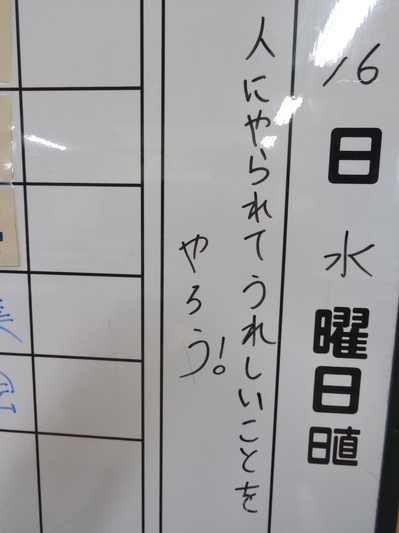 16日水曜日
日直
人にやられてうれしいことを
やろう!